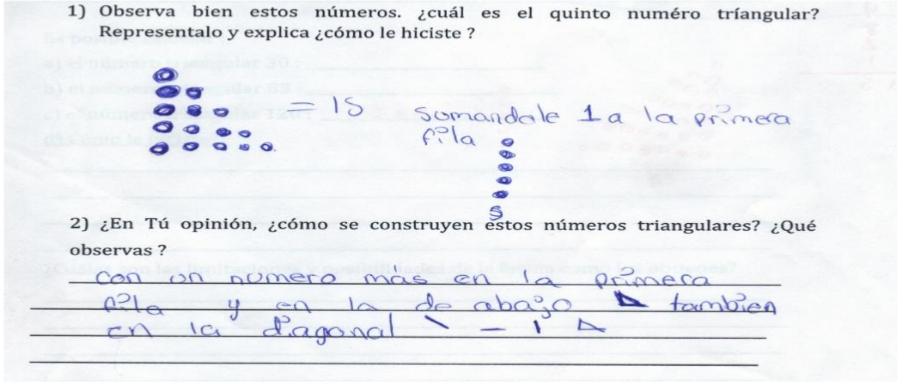 1) Observa bien estos números. ¿cuál es el quinto numéro tríangular?
Representalo y explica ¿cómo le hiciste ?
= 15 Sumandole 1 a la primera
fila
5
2) ¿En Tú opinión, ¿cómo se construyen estos números triangulares? ¿Qué
observas ?
Con un numero más en la primera
fila y en la de abajo tambien
en la diagonal